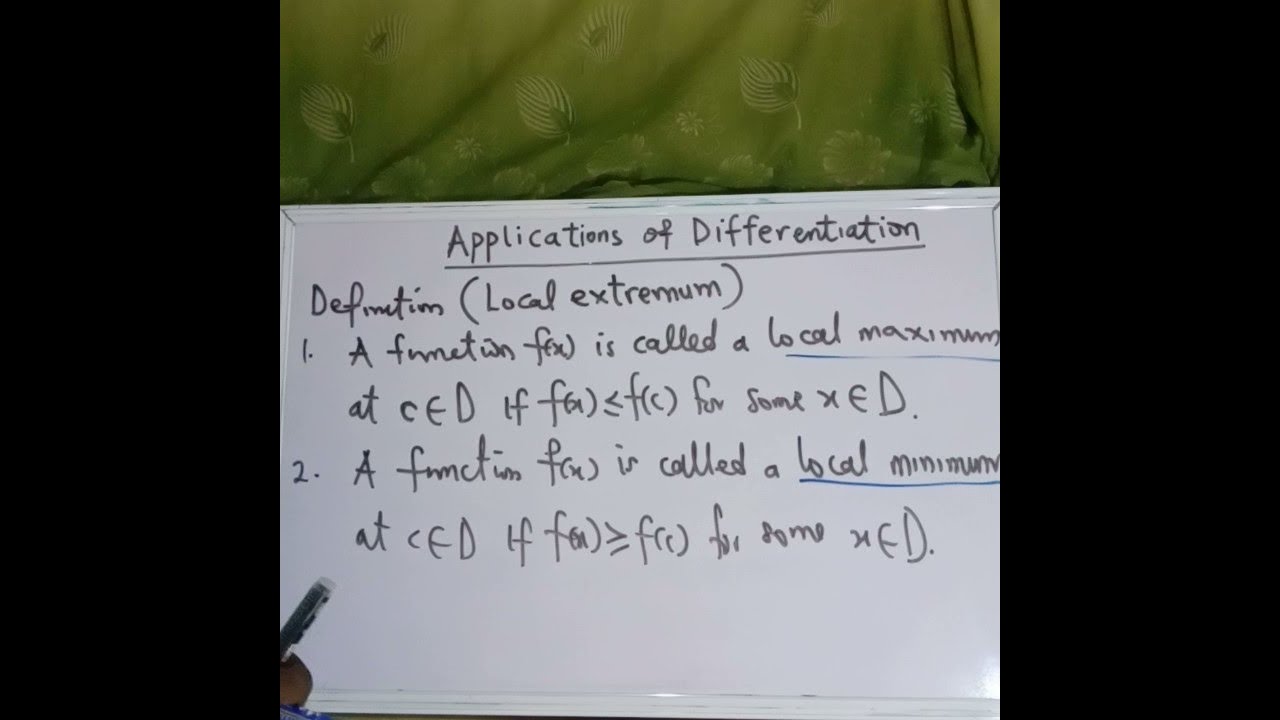 Applications of Differentiation
Definition (Local extremum)
1. A function f(x) is called a local maximum
at c∈D if f(x)≤f(c) for some x∈D.
2. A function f(x) is called a local minimum
at c∈D if f(x)≥f(c) for some x∈D.